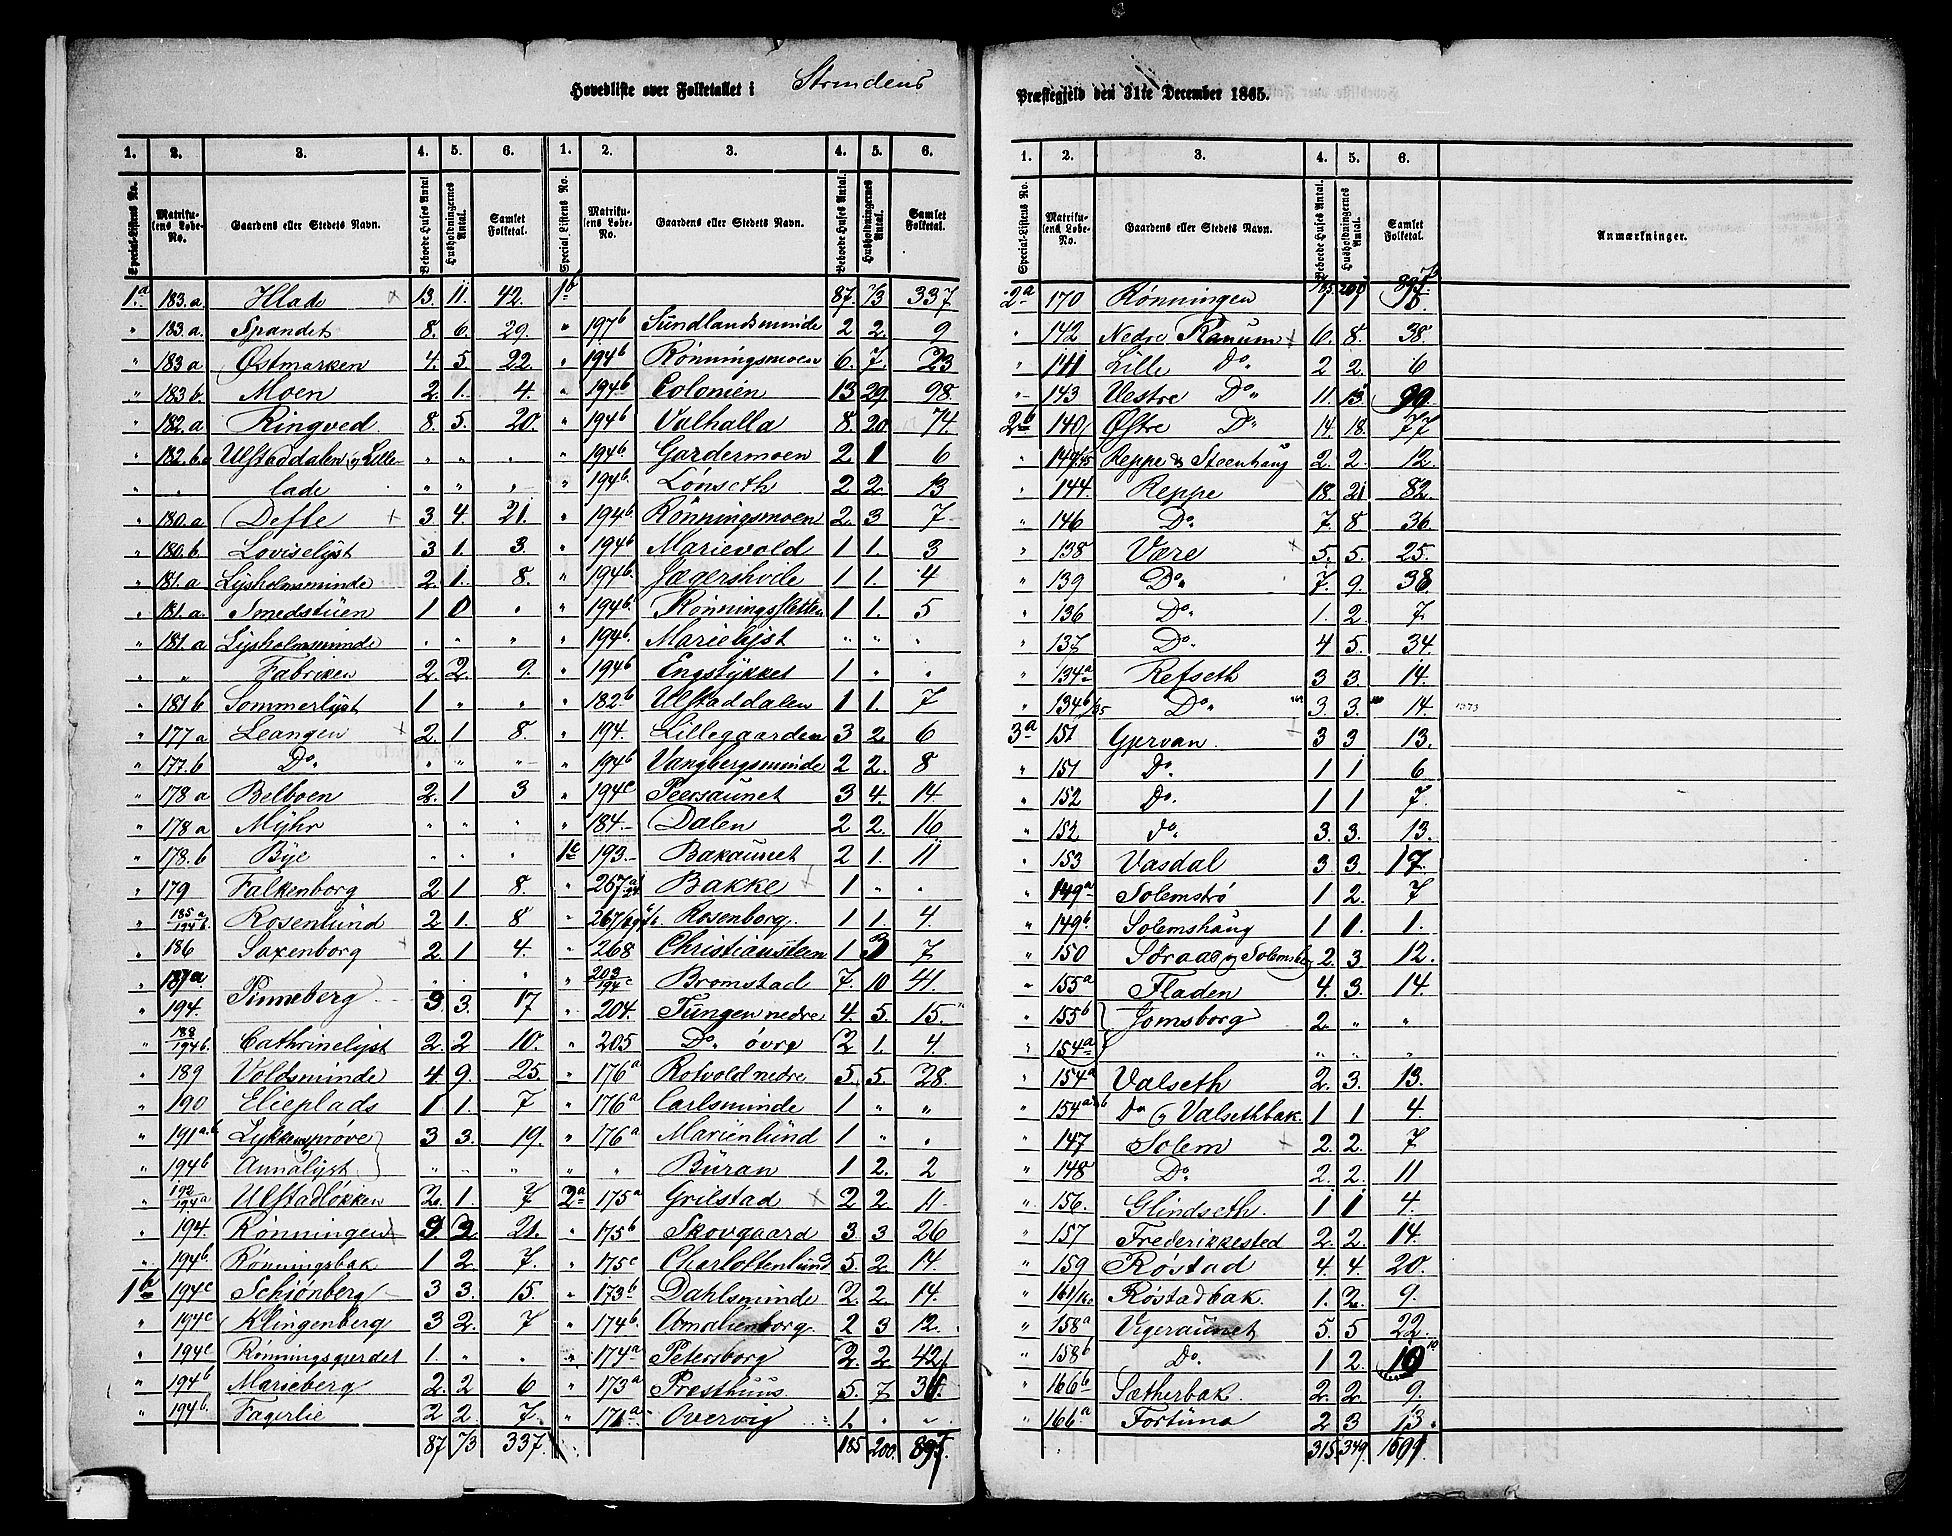 Hovedliste over Folketallet i Strindens
Præstegjeld den 31te December 1865.
1. 2. 3. 4. 5. 6. 1. 2. 3. 4. 5. 6.
Special-Listens No. Matrikulens Løbe-No. Gaardens eller Stedets Navn. Beboede Huses Antal Husholdningernes Antal. Samlet Folketal. Special-Listens No. Matrikulens Løbe-No. Gaardens eller Stedets Navn. Beboede Huses Antal. Husholdningernes Antal. Samlet Folketal.
1.a 183.a. Hlade 13. 11. 42. 1b 87. 73 337
" 183.a. Spandet 8. 6. 29. " 197b Sundlandsminde 2 2. 9
" 183a Østmarken 4. 5 22. " 194b Rønningsmoen 6. 7. 23
" 183b. Moen 2. 1. 4. " 194b Colonien 13 29. 98.
" 182.a Ringved. 8. 5. 20. " 194b Valhalla 8. 20. 74.
" 182.b. Ulstaddalen og Lille- " " " " 194b. Gardermoen 2 1 6
" " lade " " " " 194b. Lønseth 2 2. 13
" 180.a Defle 3. 4. 21. " 194b Rønningsmoen 2. 3 7
" 180.b. Loviselyst 3 1. 3. " 194b. Marievold 1 1. 3
" 181.a Lysholmsminde 2. 1. 8. " 194b. Jægershvile 1 1. 4
" 181.a. Smedstüen 1 0 " " 194b. Rønningsfletten 1 1. 5
" 181.a Lysholmsminde " " " " 194b. Marielyst " " "
" " Fabriken 2 2. 9. " 194b Engstykket 1 " "
" 181b Sommerlyst 1 " " " 182b Ulstaddalen 1 1. 7
" 177a Leangen 2. 1 8. " 194. Lillegaarden 3 2. 6
" 177.b Do. " " " " 194b Vangbergsminde 2 2. 8
" 178a Belboen 2. 1 3 " 194c Peersaunet 3 4. 14
" 178a Myhr " " " " 184. Dalen 2 2. 16
" 178.b Bye " " " 1c 193. Bakaunet 2 1. 11
" 179 Falkenborg 2 1 8. " 267a Bakke 1 " "
" 185a/194b. Rosenlund 2 1. 8 " 267b Rosenborg. 1 1. 4.
" 186 Saxenborg 2 1 4. " 268 Christiansteen 1 3 7
" 187a " " " " 203/194c Bromstad 7. 10 41.
" 194. Pinneberg 3 3. 17 " 204. Tungen nedre 4. 5. 15.
" 188/194b. Cathrinelyst 2. 2 10. " 205 Do. øvre 2 1. 4.
" 189 Voldsminde 4. 9. 25. " 176a Rotvold nedre 5. 5. 28.
" 190 Elieplads 1 1. 7 " 176a Carlsminde 1 " "
" 191a.b Lykkensprøve 3 3. 19. " 176a Marienlünd 1 " "
" 194b Annalyst " " " " " Büran 1 2. 2
" 192/194a Ulstadløkken 2. 1. 7 2a 175a Grilstad 2 2. 11.
" 194. Rønningen 9. 3. 21. " 175b Skovgaard 3. 3 26
" 194b. Rønningsbak 1 2. 7. " 175c Charlottenlund 5. 2. 14.
1b 194c Schiønberg 3 3. 15. " 173b Dahlsminde 2. 2. 14.
" 194c Klingenberg 3 2. 7 " 174b. Amalienborg. 2 3 12.
" 194c Rønningsgjerdet 1. " " " 174a Petersborg 2. 2 42
" 194b Marieberg 2. 2 6 " 173a Presthuus 5. 7. 31.
" 194b. Fagerlie 2 2. 7. " 171a Overvig 1. " "
87 73 337. 185 200. 895.
1. 2. 3. 4. 5. 6.
Special-Listens No. Matrikulens Løbe-No. Gaardens eller Stedets Navn. Beboede Huses Antal. Husholdningernes Antal. Samlet Folketal. Anmærkninger.
2a 170 Rønningen 1 1
" 142 Nedre Ranum 6. 8. 38.
" 141 Lille Do. 2 2. 6
" 143 Vestre Do. 11. 13. 99.
2b 140 Østre Do 14. 18. 77
" 149/145 Reppe & Steenhaug 2. 2. 12.
" 144. Reppe 18. 21 82.
" 146 Do. 7. 8 36
" 138 Være 5. 5. 25.
" 139 Do. 7. 9. 38
" 136 Do. 1. 2. 7
" 137 Do. 4 5. 34.
" 134a Refseth 3 3. 14.
" 134b/135 Do. 3. 3. 14. 1373
3a 151 Gjervan 3 3 13.
" 151 Do. 1 1 6
" 152 Do. 1 1 7
" 152 Do. 3. 3. 13.
" 153 Vasdal 3 3. 17.
" 149a Solemstrø 1 2. 7
" 149b Solemshaug 1 1. 1.
" 150 Søraas og Solemsb 2. 3. 12.
" 155a Fladen 4. 3. 14.
" 155b Jomsborg 2. " "
" 154a " " "
" 154a Valseth 2. 3. 13.
" 154a b Do og Valsethbak. 1 1 4.
" 147 Solem 2. 2. 7
" 148 Do. 2. 2. 11
" 156. Glindseth. 1 1 4.
" 157 Frederikkested 2. 2. 14.
" 159 Røstad 4. 4. 20.
" 161/160 Røstadbak. 1. 2. 9.
" 158a Vigeraunet 5. 5 22.
" 158b Do. 1 2. 10
" 166b Sætherbak 2. 2. 9.
" 166a Fortuna 2 3 13.
315. 349. 1591.